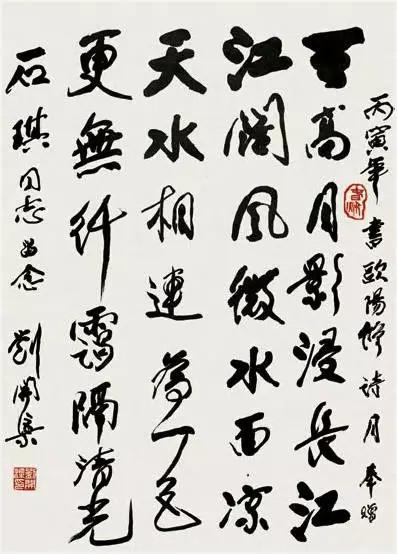 丙寅年書歐陽修詩月奉贈
天高月影浸長江
江闊風微水面涼
天水相連為一色
更無纤靄隔清光
石琪同志留念
劉開渠